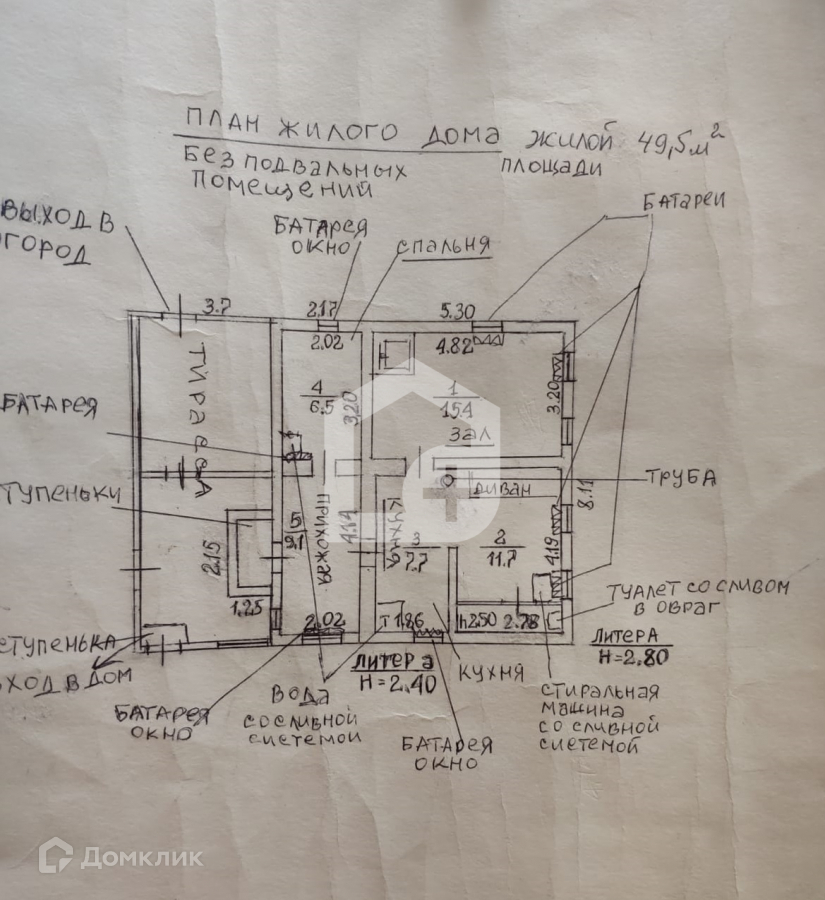 ПЛАН ЖИЛОГО ДОМА ЖИЛОЙ 49,5 м²
БЕЗ ПОДВАЛЬНЫХ ПЛОЩАДИ
ПОМЕЩЕНИЙ
ВЫХОД В
ГОРОД
БАТАРЕЯ
ОКНО
СПАЛЬНЯ
БАТАРЕИ
3.7
2.17
5.30
2.02
4.82
ТИРАССА
4
6.5
3.20
1
15.4
ЗАЛ
3.20
БАТАРЕЯ
ТУПЕНЬКИ
ТРУБА
ДИВАН
8.11
ПРИХОЖАЯ
КУХНЬ
5
9.1
4.14
3
7.7
2
11.7
4.19
2.15
1.25
2.02
Т 1.86
h2.50
2.78
ТУАЛЕТ СО СЛИВОМ
В ОВРАГ
СТУПЕНЬКА
ХОД В ДОМ
ЛИТЕР а
H=2.40
КУХНЯ
ЛИТЕРА
H=2.80
БАТАРЕЯ
ОКНО
ВОДА
СО СЛИВНОЙ
СИСТЕМОЙ
БАТАРЕЯ
ОКНО
СТИРАЛЬНАЯ
МАШИНА
СО СЛИВНОЙ
СИСТЕМОЙ
Домклик